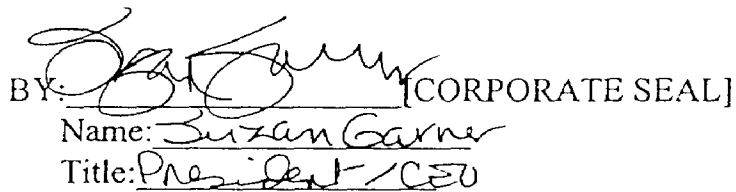 BY: [CORPORATE SEAL]
Name: Suzan Garner
Title: President / CEO